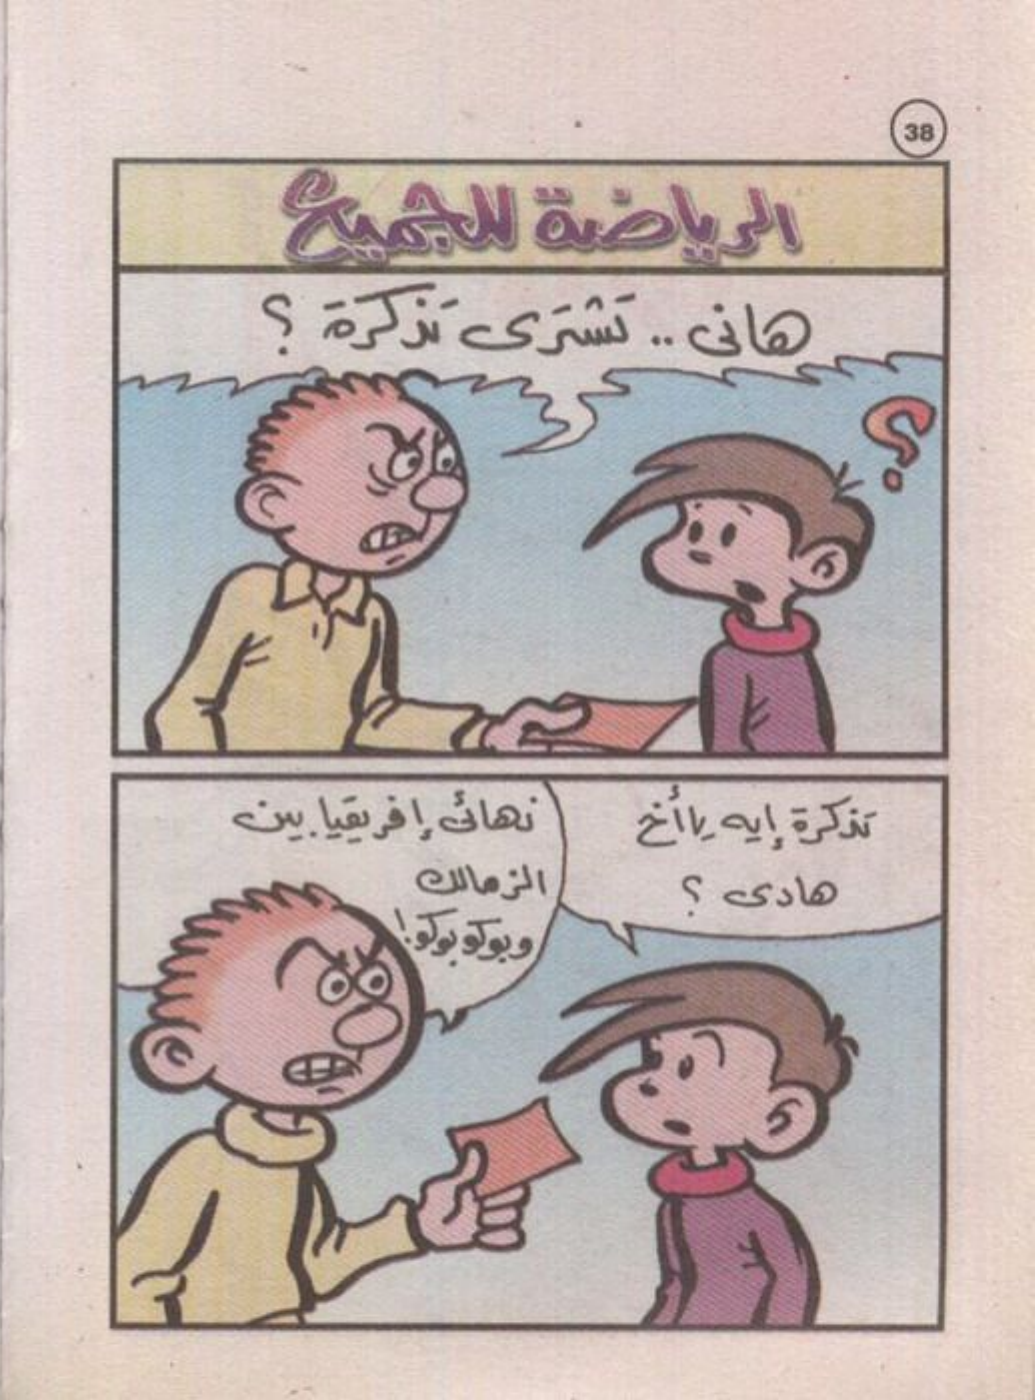 38
الرياضة للجميع
هانى .. تَشترَى تَذكرَة ؟
تَذكرة إيه يا أخ
هادى ؟
نهائى إفريقيا بين
الزمالك
وبوكو بوكو!